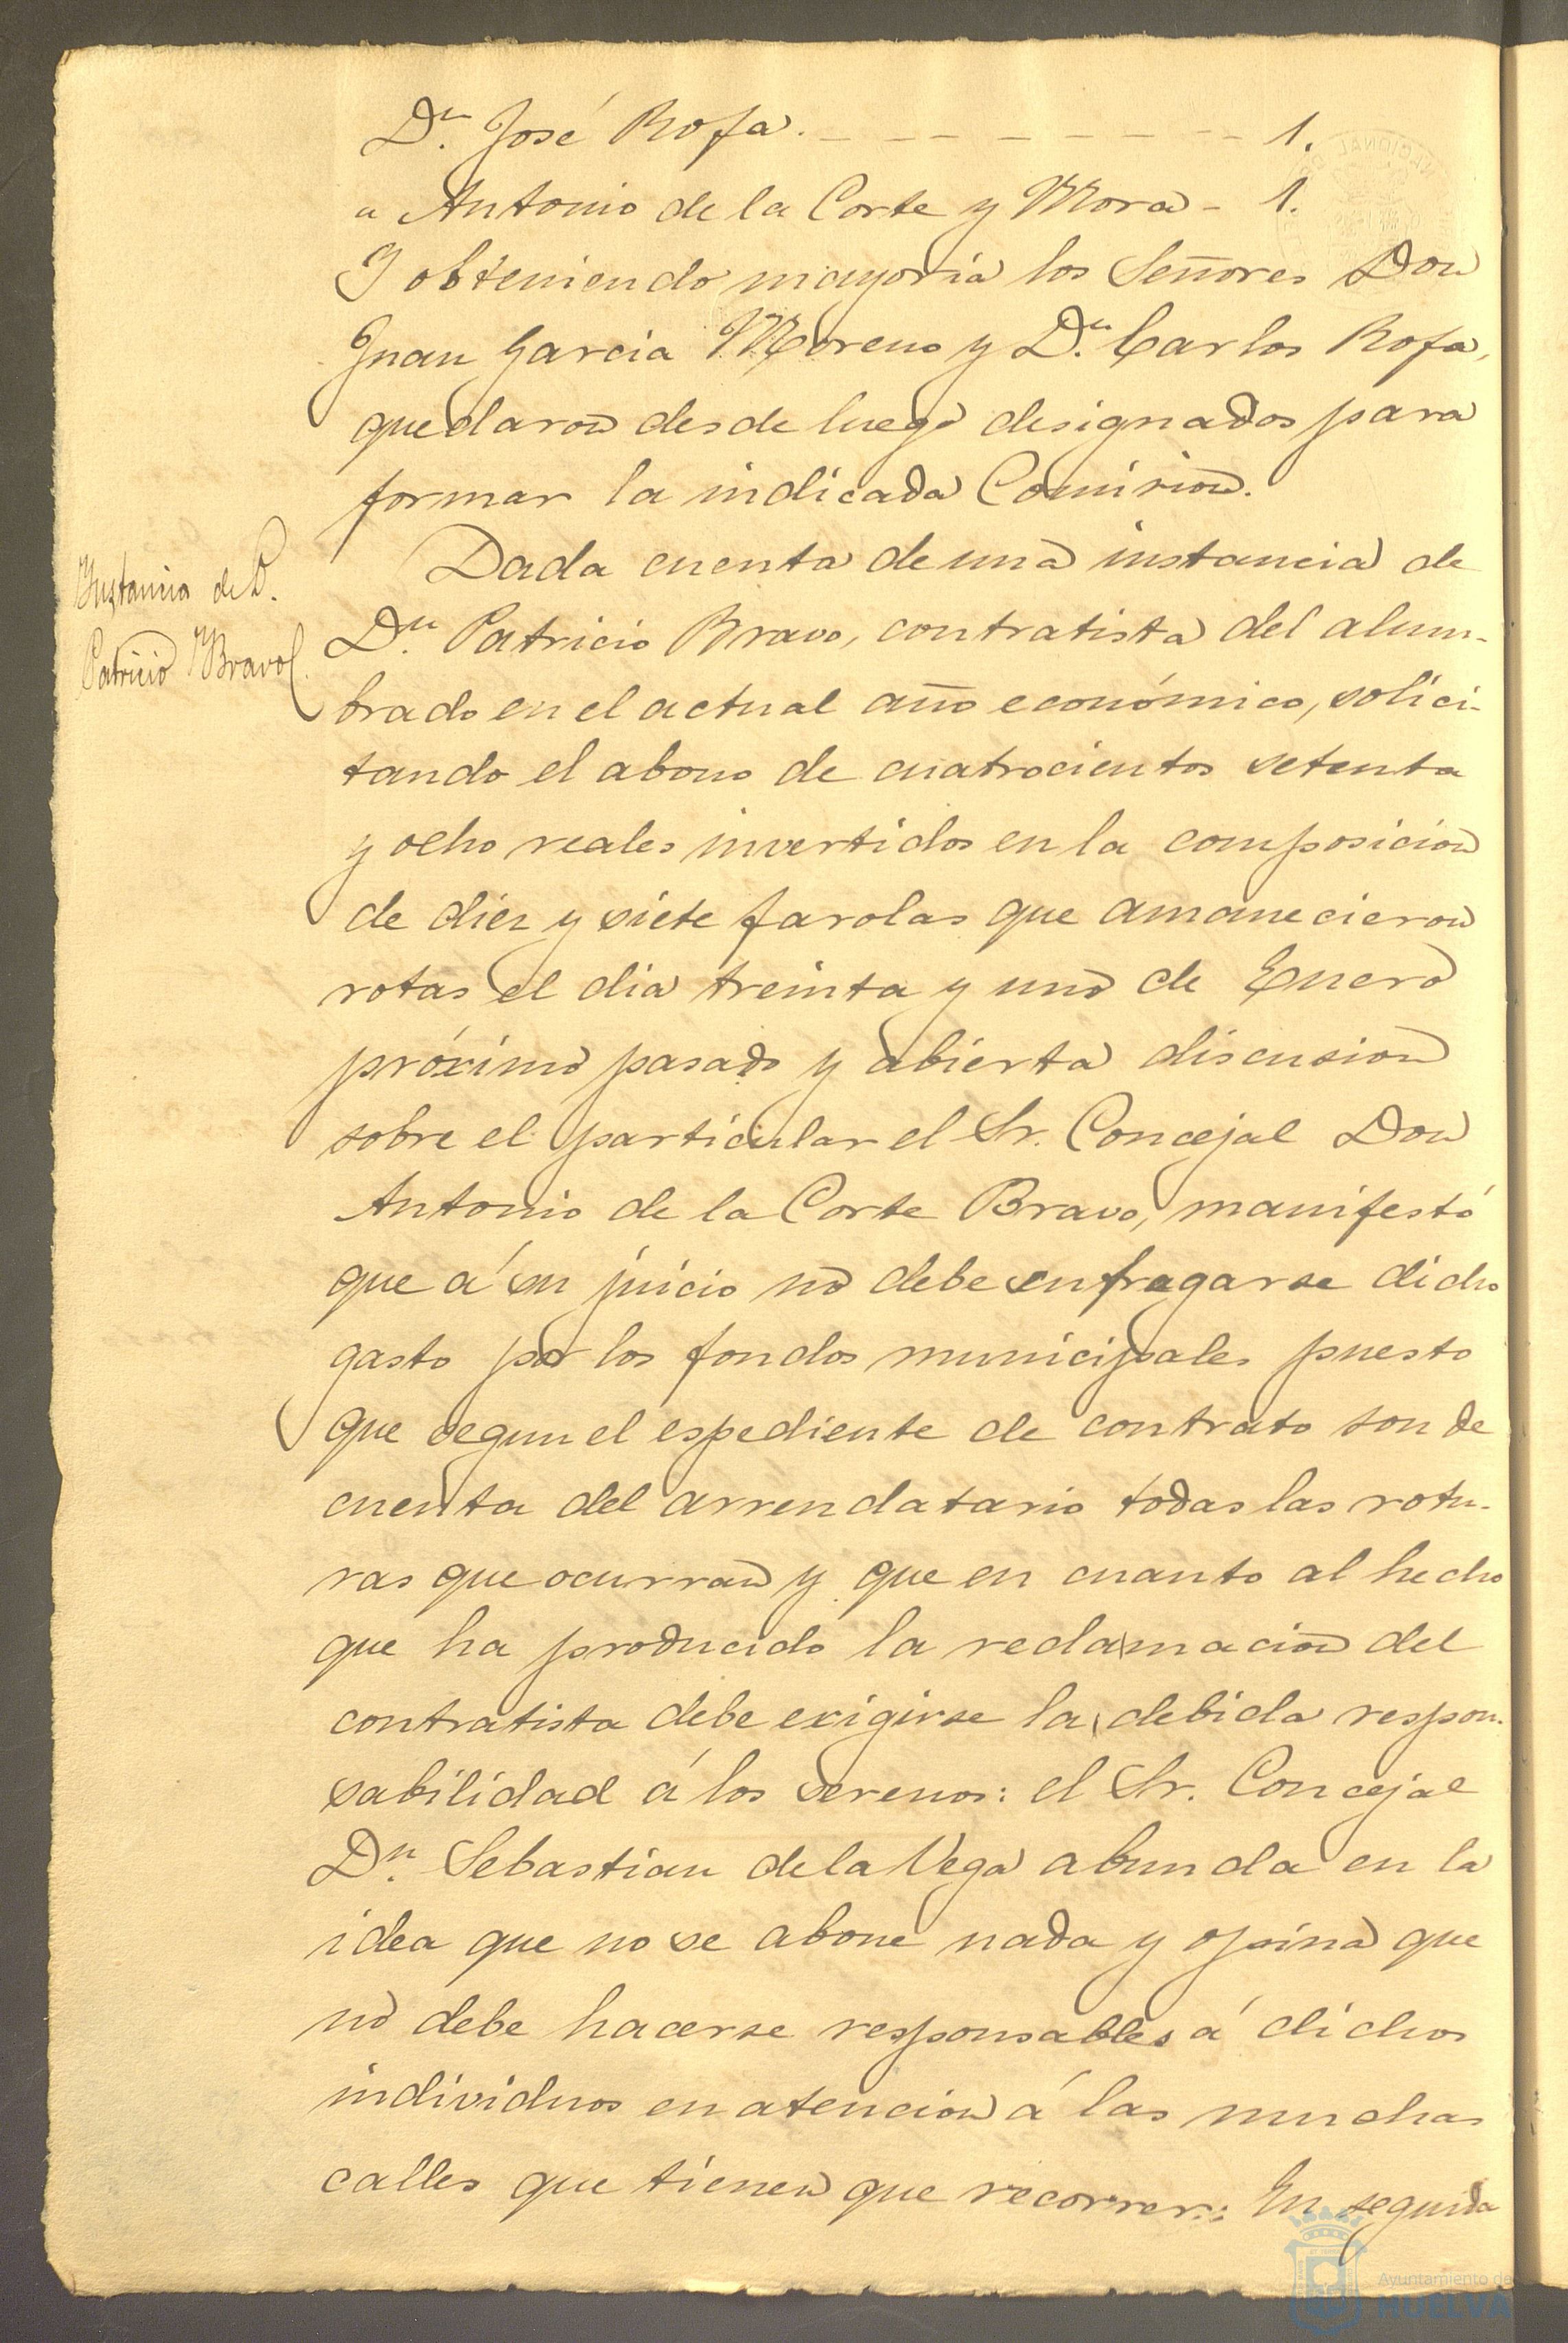 Dn. José Rofa. - - - - - - - - - 1.
" Antonio de la Corte y Mora - 1.
Y obteniendo mayoría los Señores Don
Juan Garcia Moreno y Dn. Carlos Rofa,
quedaron desde luego designados para
formar la indicada Comision.
Instancia de D.
Patricio Bravo
Dada cuenta de una instancia de
Dn. Patricio Bravo, contratista del alum-
brado en el actual año económico, solici-
tando el abono de cuatrocientos setenta
y ocho reales invertidos en la composicion
de diez y siete farolas que amanecieron
rotas el dia treinta y uno de Enero
próximo pasado y abierta discusion
sobre el particular el Sr. Concejal Don
Antonio de la Corte Bravo, manifestó
que á su juicio no debe sufragarse dicho
gasto por los fondos municipales puesto
que segun el espediente de contrato son de
cuenta del arrendatario todas las rotu-
ras que ocurran y que en cuanto al hecho
que ha producido la reclamacion del
contratista debe exigirse la debida respon-
sabilidad á los serenos: el Sr. Concejal
Dn. Sebastian de la Vega abunda en la
idea que no se abone nada y opina que
no debe hacerse responsables á dichos
individuos en atencion á las muchas
calles que tienen que recorrer: En seguida
Ayuntamiento de
HUELVA